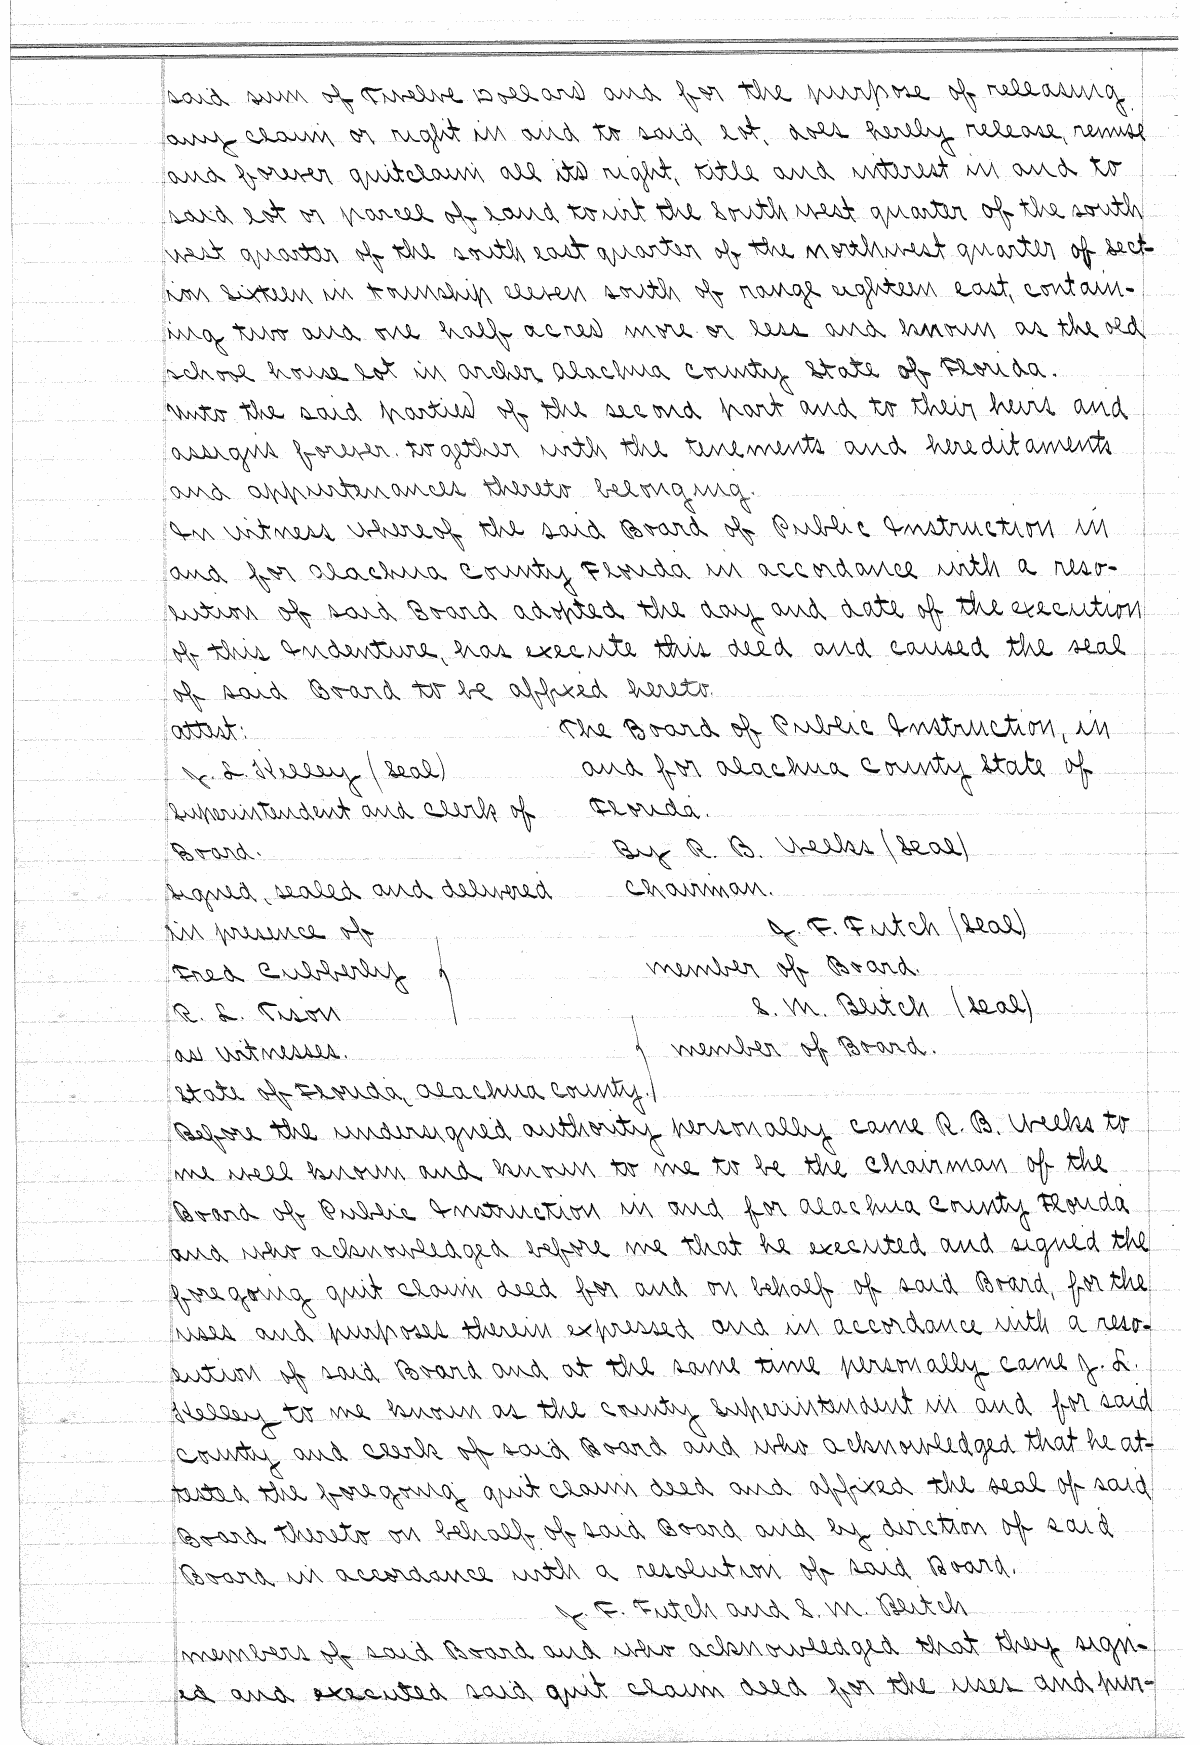 said sum of Twelve Dollars and for the purpose of releasing
any claim or right in and to said lot, does hereby release, remise
and forever quitclaim all its right, title and interest in and to
said lot or parcel of land towit the South west quarter of the south
west quarter of the south east quarter of the northwest quarter of sect-
ion sixteen in township eleven south of range eighteen east, contain-
ing two and one half acres more or less and known as the old
school house lot in archer Alachua County State of Florida.
Unto the said parties of the second part and to their heirs and
assigns forever. together with the tenements and hereditaments
and appurtenances thereto belonging.
In witness whereof the said Board of Public Instruction in
and for Alachua County Florida in accordance with a reso-
lution of said Board adopted the day and date of the execution
of this Indenture, has execute this deed and caused the seal
of said Board to be affixed hereto.
attest: The Board of Public Instruction, in
J. L. Kelley (Seal) and for Alachua County State of
Superintendent and Clerk of Florida.
Board. By R. B. Weeks (Seal)
signed, sealed and delivered Chairman.
in presence of J. F. Futch (Seal)
Fred Cubberly member of Board.
R. L. Tison S. M. Blitch (Seal)
as witnesses. member of Board.
State of Florida, Alachua County.
Before the undersigned authority personally came R. B. Weeks to
me well known and known to me to be the Chairman of the
Board of Public Instruction in and for Alachua County Florida
and who acknowledged before me that he executed and signed the
foregoing quit claim deed for and on behalf of said Board, for the
uses and purposes therein expressed and in accordance with a reso-
lution of said Board and at the same time personally came J. L.
Kelley to me known as the county Superintendent in and for said
county and Clerk of said Board and who acknowledged that he at-
tested the foregoing quit claim deed and affixed the seal of said
Board thereto on behalf of said Board and by direction of said
Board in accordance with a resolution of said Board.
J. F. Futch and S. M. Blitch
members of said Board and who acknowledged that they sign-
ed and executed said quit claim deed for the uses and pur-